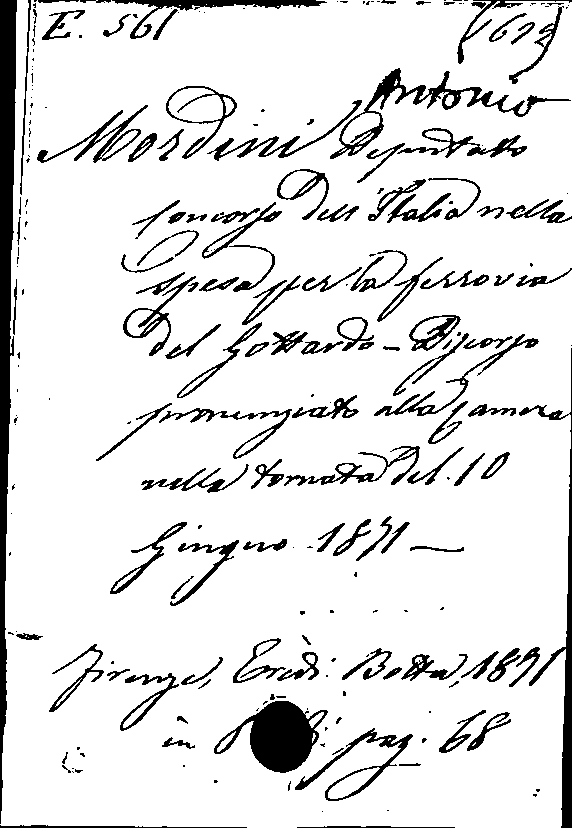 E. 561 (622)
Antonio
Mordini, Deputato
Concorso dell'Italia nella
spesa per la ferrovia
del Gottardo - Discorso
pronunziato alla Camera
nella tornata del 10
Giugno 1871 —
Firenze, Eredi Botta, 1871
in pag. 68